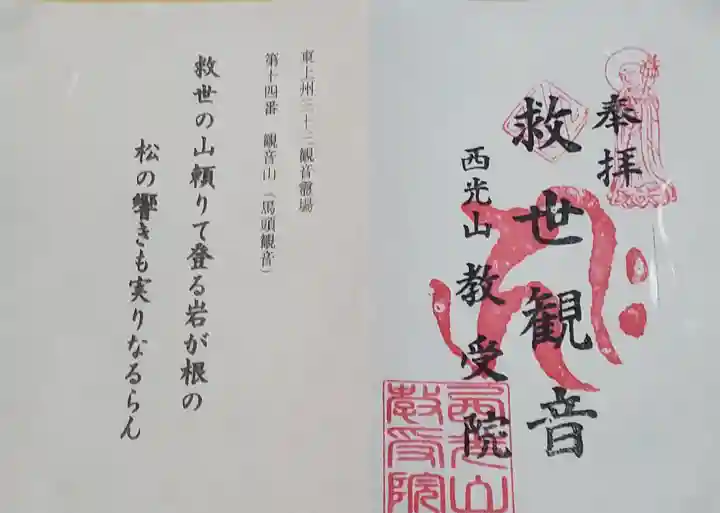 奉拝
救世観音
西光山教受院
西光山
教受院
東上州三十三観音霊場
第十四番 観音山（馬頭観音）
救世の山頼りて登る岩が根の
松の響きも実りなるらん